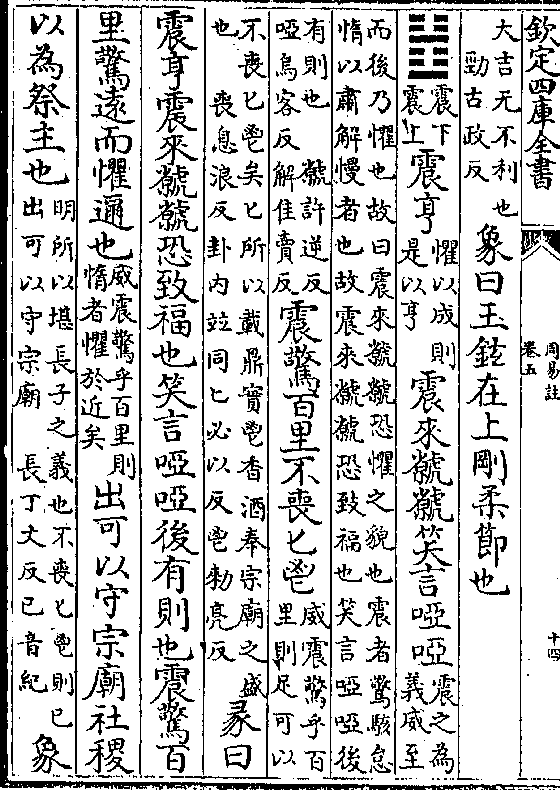 欽定四庫全書
周易註
卷五
十四
大吉无不利也
勁古政反
象曰王鉉在上剛柔節也
䷲
震下
震上
震亨
懼以成則
是以亨
震來虩虩笑言啞啞
震之為
義威至
而後乃懼也故曰震來虩虩恐懼之貌也震者驚駭怠
惰以肅解慢者也故震來虩虩恐致福也笑言啞啞後
有則也 虩許逆反
啞烏客反解佳賣反
震驚百里不喪匕鬯
威震驚乎百
里則足可以
不喪匕鬯矣匕所以載鼎實鬯香酒奉宗廟之盛
也 喪息浪反卦内並同匕必以反鬯勑亮反
彖曰
震亨震來虩虩恐致福也笑言啞啞後有則也震驚百
里驚遠而懼邇也
威震驚乎百里則
惰者懼於近矣
出可以守宗廟社稷
以為祭主也
明所以堪長子之義也不喪匕鬯則已
出可以守宗廟 長丁丈反已音紀
象